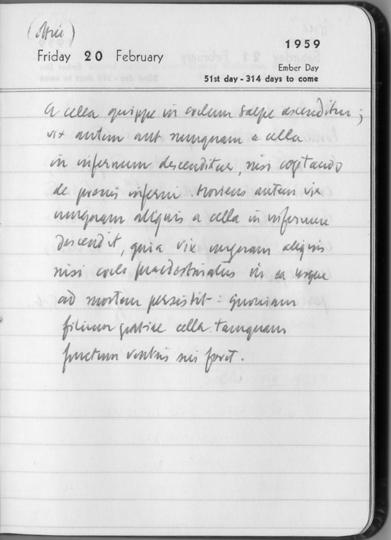 (Office)
1959
Friday 20 February
Ember Day
51st day - 314 days to come
A cella quippe in coelum saepe ascenditur ;
vix autem aut numquam a cella
in infernum descenditur, nisi cogitando
de poenis inferni. Moriens autem vix
numquam aliquis a cella in infernum
descendit, quia vix umquam aliquis
nisi coelo praedestinatus in ea usque
ad mortem persistit : quoniam
filium gratiae cella tamquam
fructum ventris sui fovet.